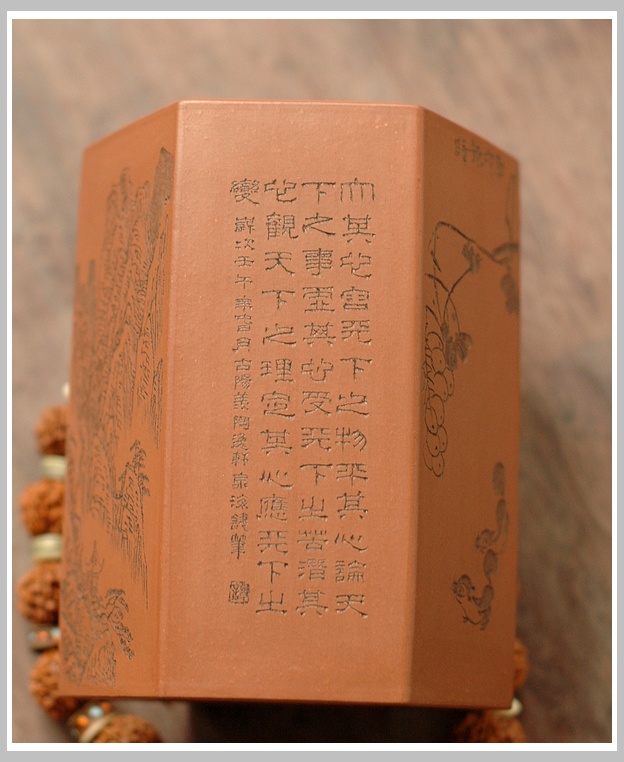 大其心容天下之物平其心論天
下之事虛其心受天下之善潛其
心觀天下之理定其心應天下之
變 歲次壬午年月古陽羨陶逸軒